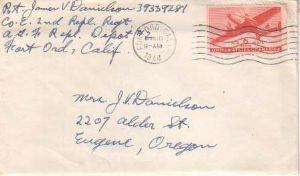 Pvt. James V Danielson 39339281
Co. E. 2nd Repl. Regt.
A.G.F. Repl. Depot #2
Fort Ord, Calif.
9-AM
1944
UNITED STATES OF AMERICA
Mrs. J V Danielson
2207 Alder St.
Eugene, Oregon